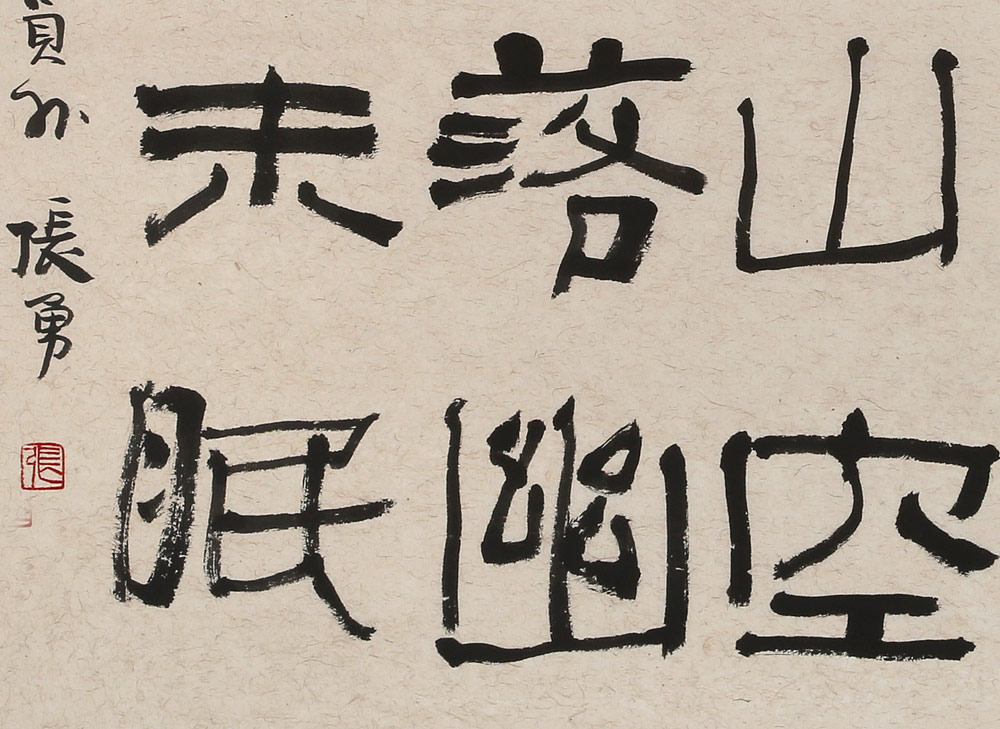 山空
落幽
未眠
員外 張勇
張